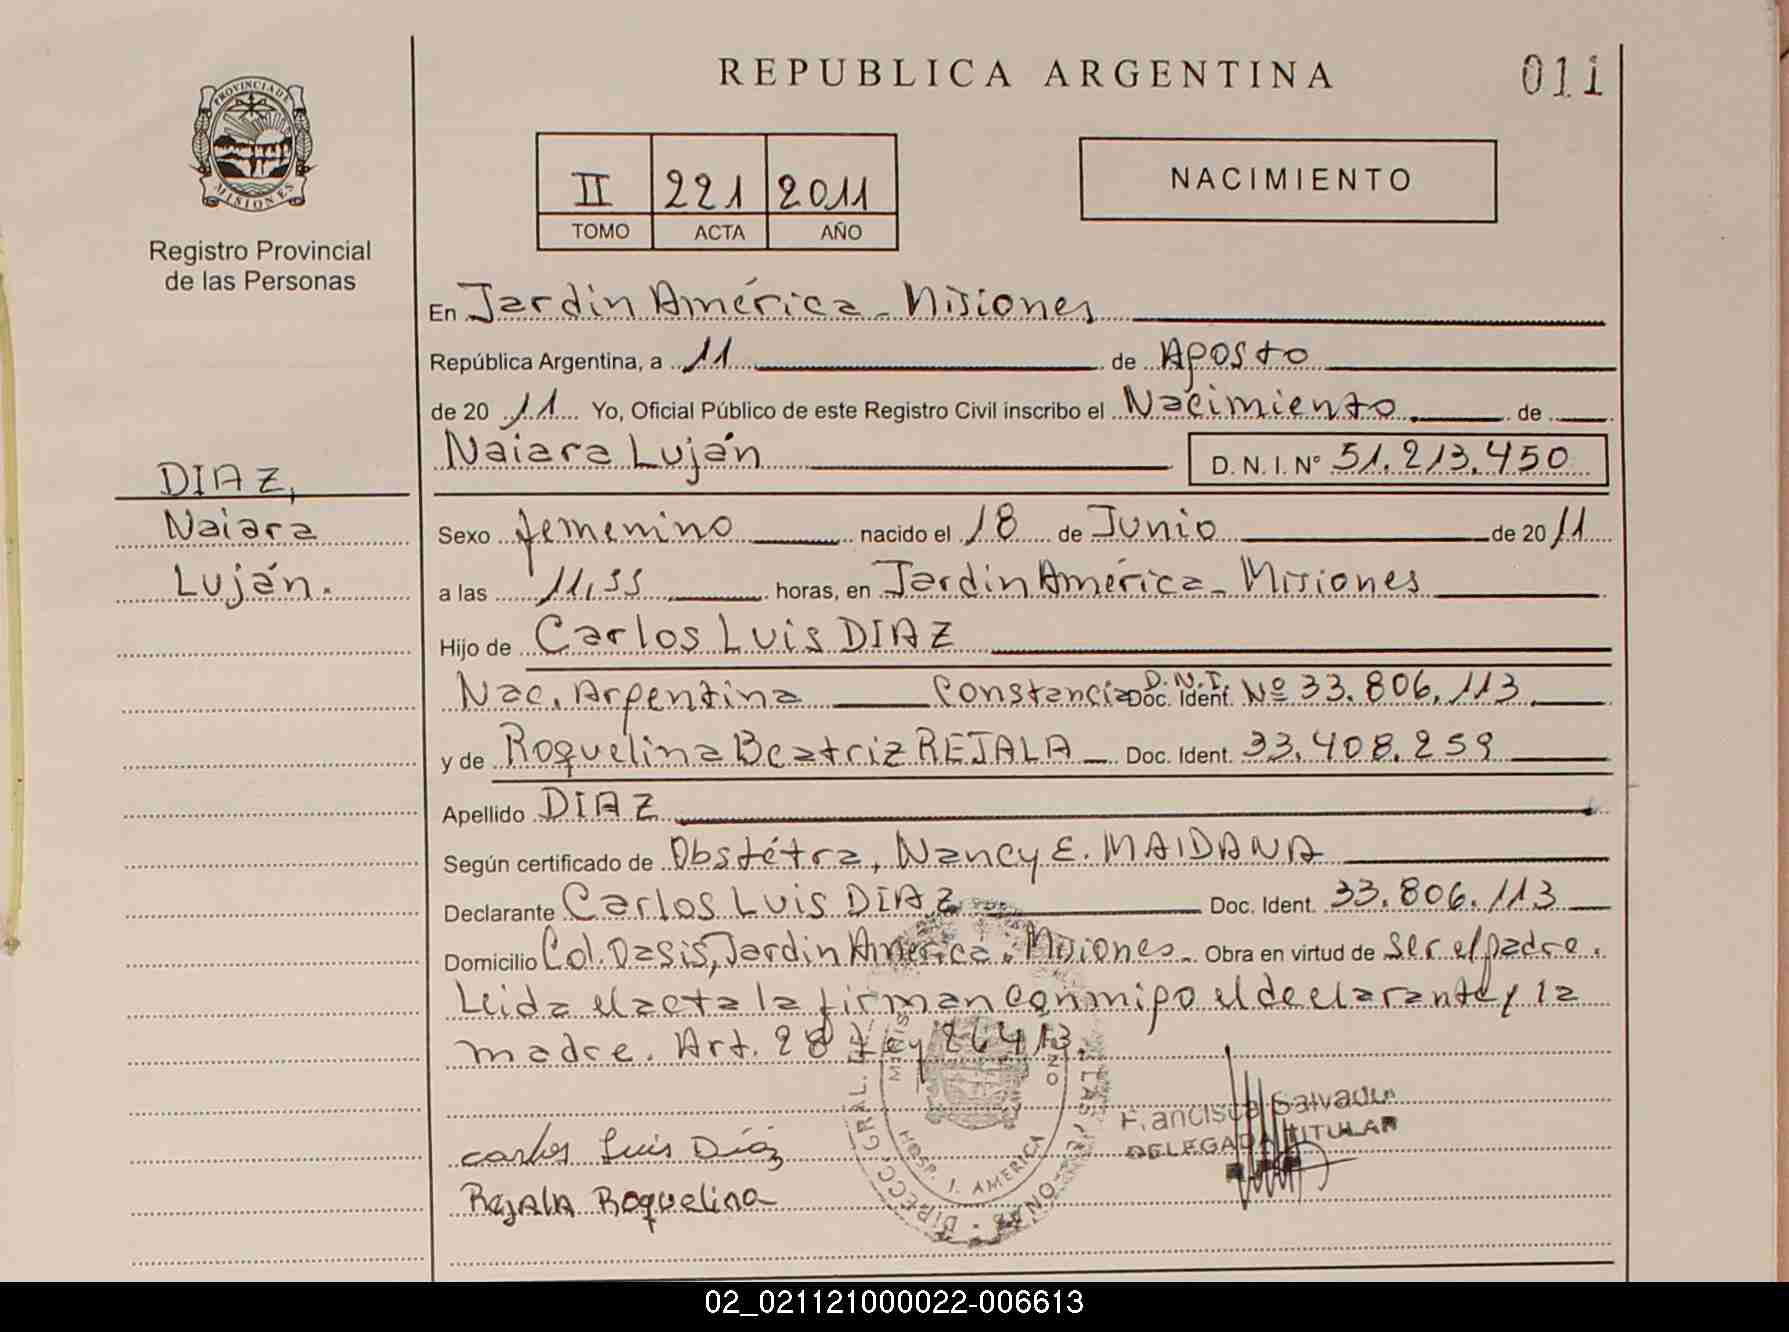 REPUBLICA ARGENTINA
011
PROVINCIA DE
MISIONES
Registro Provincial
de las Personas
II 221 2011
TOMO ACTA AÑO
NACIMIENTO
En Jardin América - Misiones
República Argentina, a 11 de Agosto
de 2011 Yo, Oficial Público de este Registro Civil inscribo el Nacimiento de
Naiara Luján D. N. I. N° 51.213.450
DIAZ,
Naiara
Luján.
Sexo femenino nacido el 18 de Junio de 2011
a las 11,55 horas, en Jardin América - Misiones
Hijo de Carlos Luis DIAZ
Nac. Argentina Constancia D.N.I. Doc. Ident. Nº 33.806.113
y de Roquelina Beatriz REJALA Doc. Ident. 33.408.259
Apellido DIAZ
Según certificado de Obstétra, Nancy E. MAIDANA
Declarante Carlos Luis DIAZ Doc. Ident. 33.806.113
Domicilio Col. Oasis, Jardin América - Misiones - Obra en virtud de ser el padre.
Leida el acta la firman conmigo el declarante y la
madre. Art. 28 Ley 26413.
Carlos Luis Díaz
Rejala Roquelina
DIRECC. GRAL.
HOSP. J. AMERICA
Francisca Salvador
DELEGADA TITULAR
02_021121000022-006613